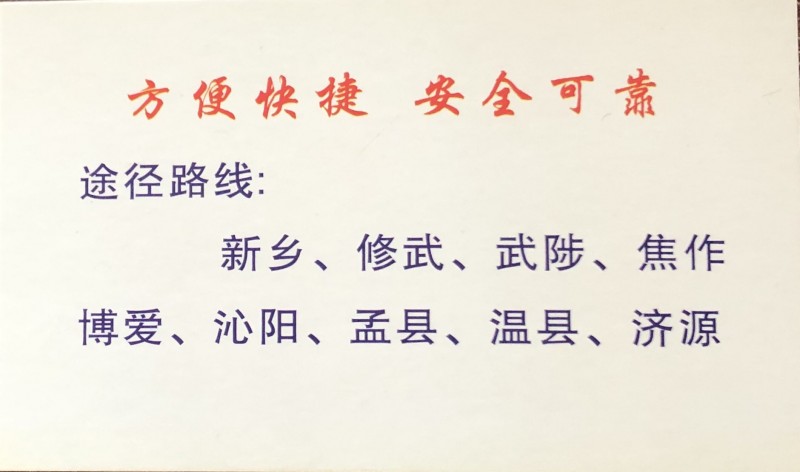 方便快捷 安全可靠
途径路线:
新乡、修武、武陟、焦作
博爱、沁阳、孟县、温县、济源